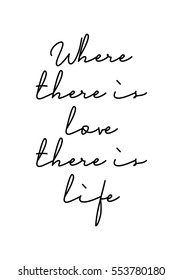 Where
there is
love
there is
life
shutterstock.com · 553780180